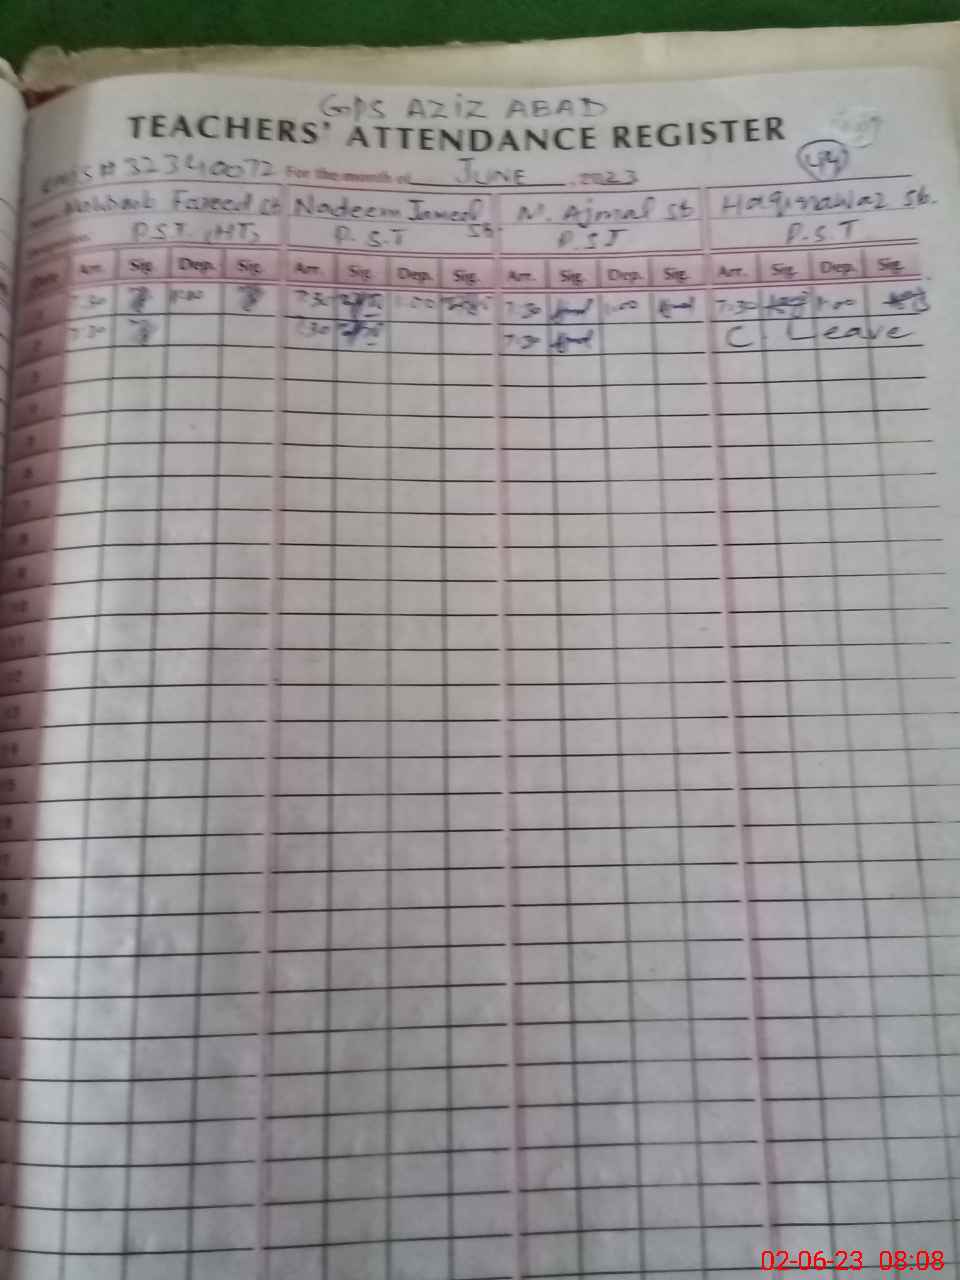 GPS AZIZ ABAD
TEACHERS' ATTENDANCE REGISTER
# 32340072 For the month of JUNE 2023 44
Fareed Nadeem M. Ajmal St Haqnawaz St.
P.S.T. (HT) P.S.T P.S.T P.S.T
Date Arr. Sig. Dep. Sig. Arr. Sig. Dep. Sig. Arr. Sig. Dep. Sig. Arr. Sig. Dep. Sig.
1 7:30 1:00 7:30 1:00 7:30 1:00 7:30 1:00
2 7:30 7:30 7:30 C. Leave
3
4
5
6
7
8
9
10
11
12
13
14
15
02-06-23 08:08